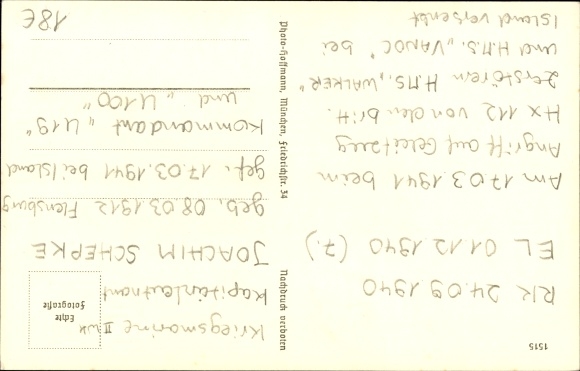 1515
RK 24.09 1940
EL 01.12 1940 (7.)
Am 17 03.1941 beim
Angriff auf Geleitzug
HX 112 von den brit.
Zerstörern H.M.S. „WALKER"
und H.M.S. „VANOC" bei
Island versenkt
Nachdruck verboten
Photo-Hoffmann, München, Friedrichstr. 34
Echte
Fotografie
Kriegsmarine II WK
Kapitänleutnant
JOACHIM SCHEPKE
geb. 08.03 1912 Flensburg
gef. 17.03.1941 bei Island
Kommandant „U19"
und „U100"
18€